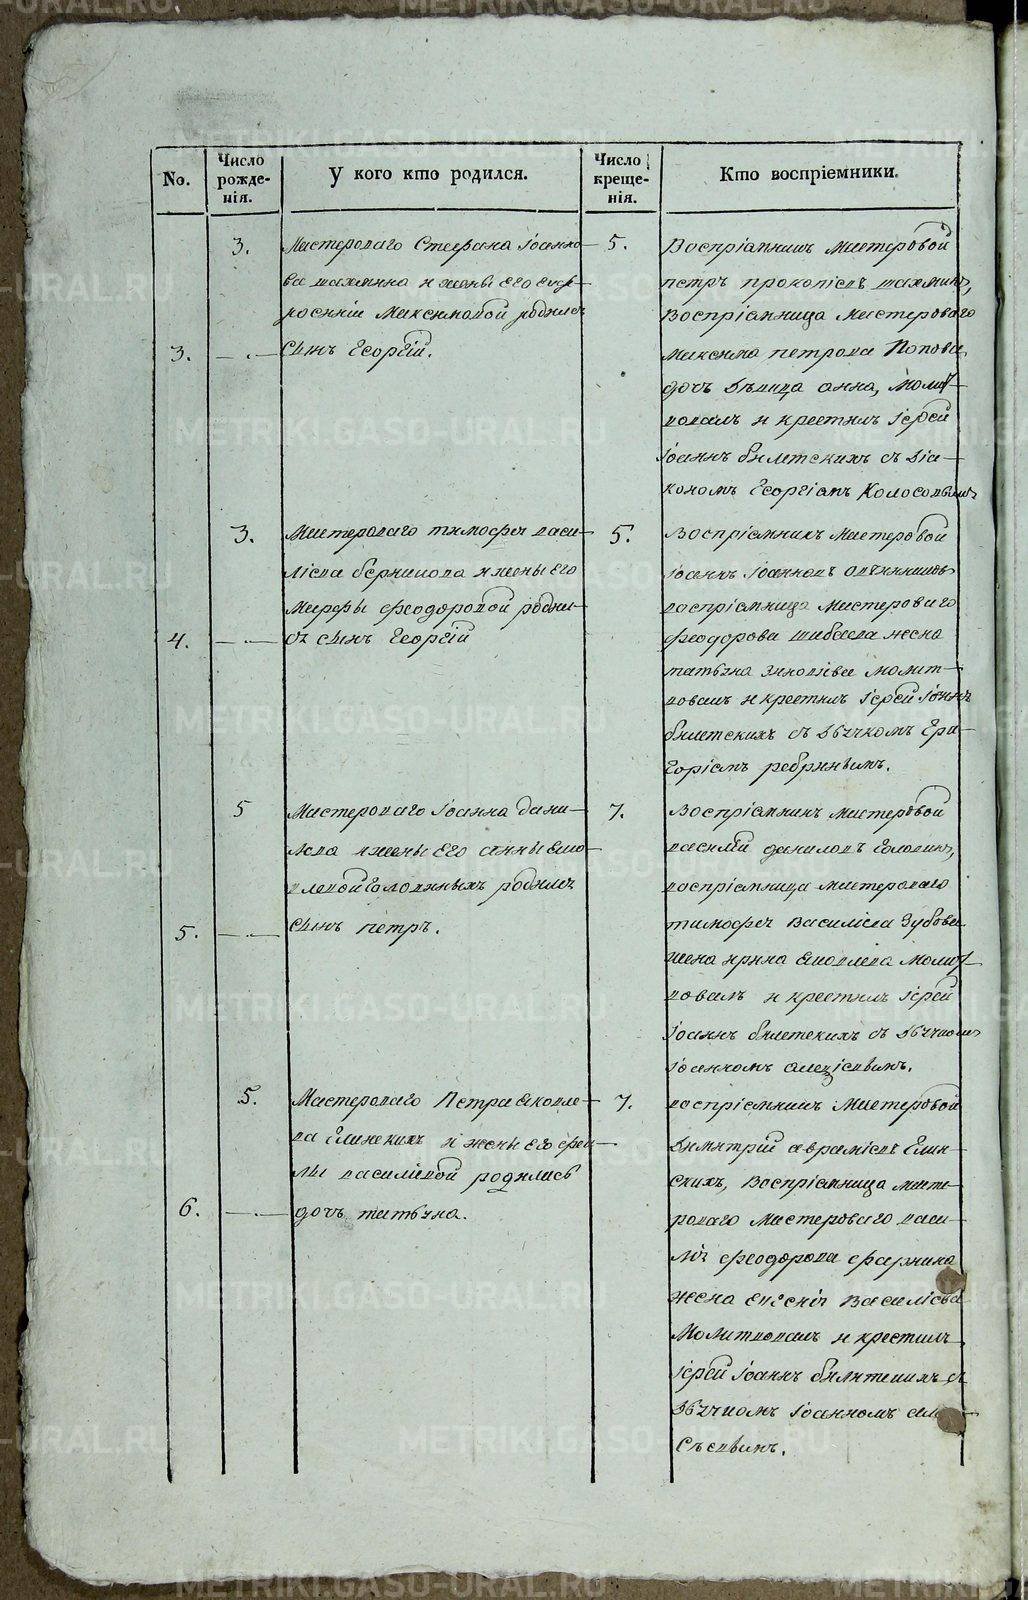 No.
Число рожде-нія.
У кого кто родился.
Число креще-нія.
Кто воспріемники.
3.
3.
Мастероваго Стефана Іоанно-
ва шахмина и жены Его евф-
росиніи Максимовой родился
сынъ Георгій.
5.
Воспріемникъ мастеровой
петръ прокопіевъ шахминъ,
Воспріемница мастероваго
максима петрова Попова
дочь девица анна, молит-
вовалъ и крестилъ Іерей
Іоаннъ билетскихъ съ діа-
кономъ Георгіемъ Колосовымъ
4.
3.
Мастероваго тимофея васи-
ліева и жены Его
Марфы феодоровой роди-
съ сынъ Георгій
5.
Воспріемникъ мастеровой
Іоаннъ Іоанновъ
воспріемница мастероваго
феодорова шибаева жена
татьяна зиновіева молит-
вовалъ и крестилъ Іерей Іоаннъ
билетскихъ съ дьячкомъ Гри-
горіемъ ребринымъ.
5.
5
Мастероваго Іоанна дани-
лова и жены Его анны
Голодныхъ родился
сынъ петръ.
7.
Воспріемникъ мастеровой
василій даниловъ
воспріемница мастероваго
тимофея Василіева Зубова
жена ирина молит-
вовалъ и крестилъ Іерей
Іоаннъ билетскихъ съ дьячкомъ
Іоанномъ
6.
5.
Мастероваго Петра яковле-
ва Глинскихъ и жены его фек-
лы василіевой родилась
дочь татьяна.
7.
воспріемникъ Мастеровой
Димитрій авраміевъ Глин-
скихъ, воспріемница масте-
роваго Мастероваго васи-
лія феодорова
жена Василіева
Молитвовалъ и крестилъ
Іерей Іоаннъ билетскихъ съ
дьячкомъ Іоанномъ
METRIKI.GASO-URAL.RU